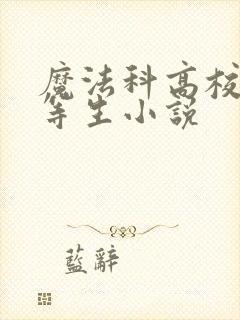 魔法科高校
等生小説
藍辭